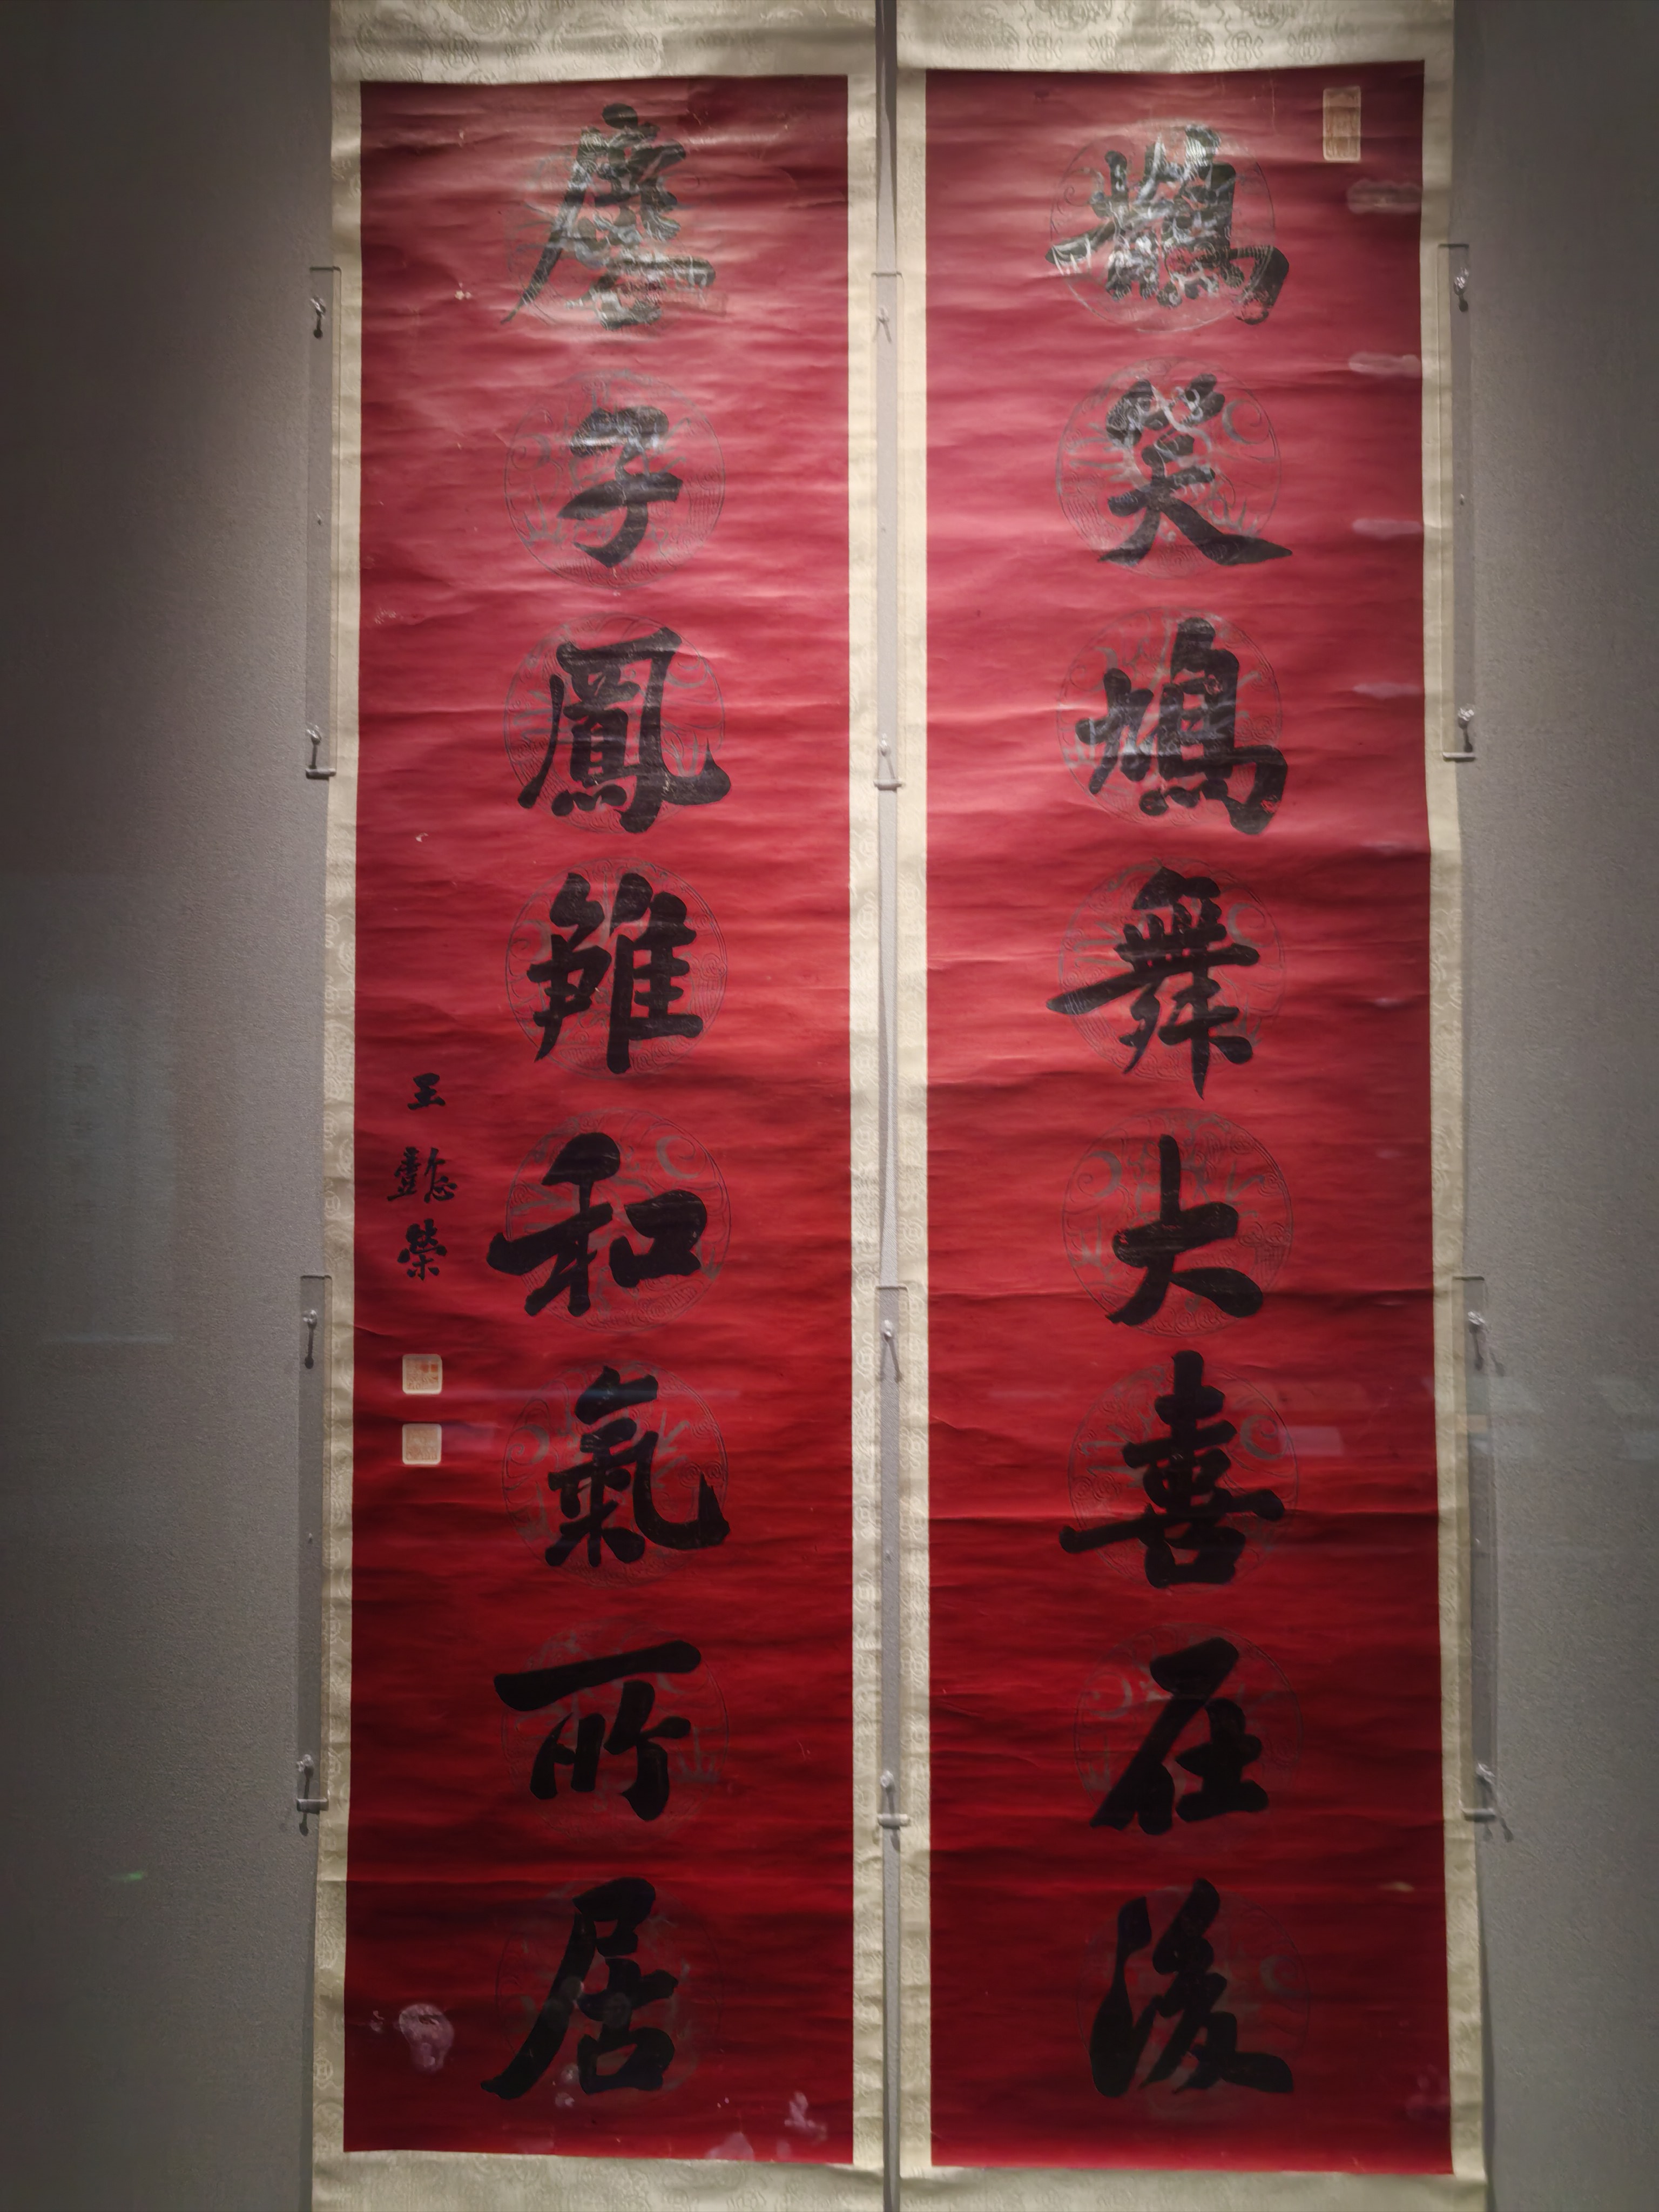 鵲笑鳩舞大喜在後
麐子鳳雛和氣所居
王懿榮